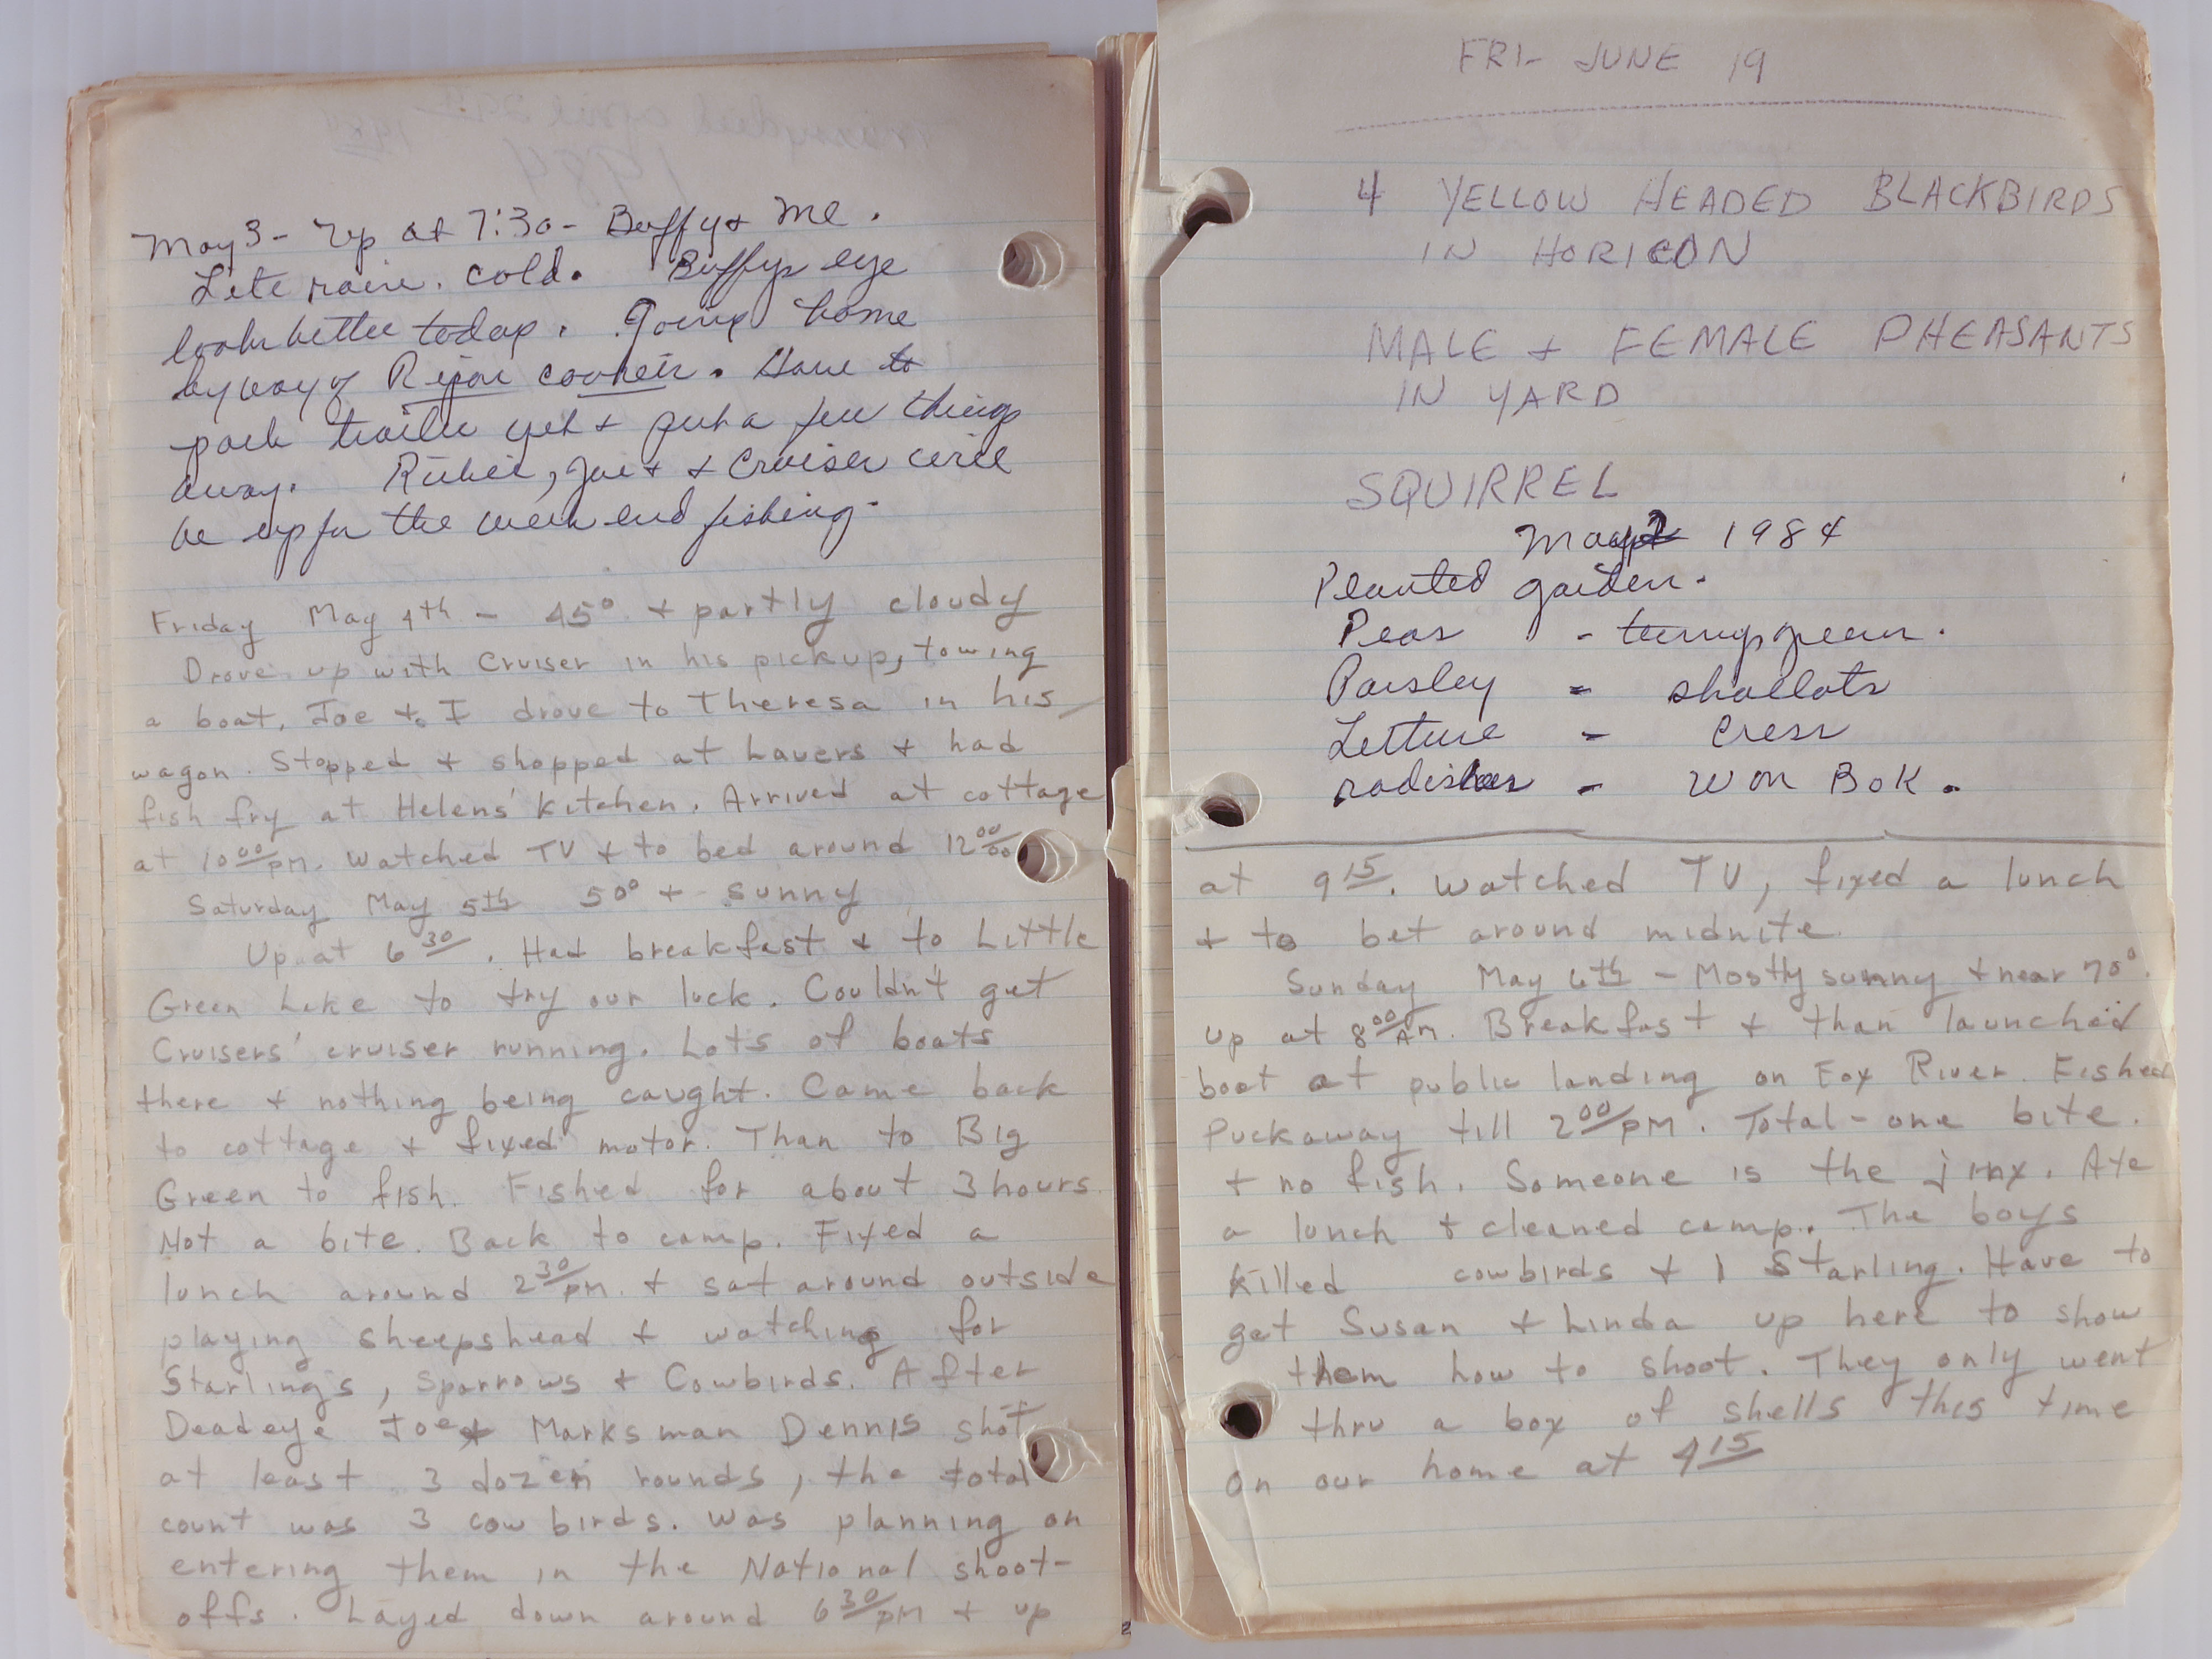 May 3 - Up at 7:30 - Buffy & me.
Lite rain. cold. Buffys eye
looks better today. Going home
by way of Ripon cookies. Have to
pack trailer yet & put a few things
away. Richie, Joe & Cruiser will
be up for the week end fishing.
Friday May 4th - 45° & partly cloudy
Drove up with Cruiser in his pickup, towing
a boat. Joe & I drove to Theresa in his
wagon. Stopped & shopped at Lavers & had
fish fry at Helens' Kitchen. Arrived at cottage
at 10 00/PM. Watched TV & to bed around 12 00/00
Saturday May 5th 50° & sunny
Up at 6 30. Had breakfast & to Little
Green Lake to try our luck. Couldn't get
Cruisers' cruiser running. Lots of boats
there & nothing being caught. Came back
to cottage & fixed motor. Than to Big
Green to fish. Fished for about 3 hours.
Not a bite. Back to camp. Fixed a
lunch around 2 30/PM. & sat around outside
playing sheepshead & watching for
Starlings, Sparrows & Cowbirds. After
Deadeye Joe & Marksman Dennis shot
at least 3 dozen rounds, the total
count was 3 cow birds. Was planning on
entering them in the National shoot-
offs. Layed down around 6 30/PM & up
FRI- JUNE 19
4 YELLOW HEADED BLACKBIRDS
IN HORICON
MALE & FEMALE PHEASANTS
IN YARD
SQUIRREL
May 2 1984
Planted garden.
Peas - turnip greens.
Parsley - shallots
Lettuce - Cress
radishes - Won Bok.
at 9 15. Watched TV, fixed a lunch
& to bet around midnite.
Sunday May 6th - Mostly sunny & near 70°.
Up at 8 00/AM. Breakfast & than launched
boat at public landing on Fox River. Fished
Puckaway till 2 00/PM. Total - one bite.
& no fish. Someone is the jinx. Ate
a lunch & cleaned camp. The boys
killed cowbirds & 1 Starling. Have to
get Susan & Linda up here to show
them how to shoot. They only went
thru a box of shells this time
on our home at 4 15